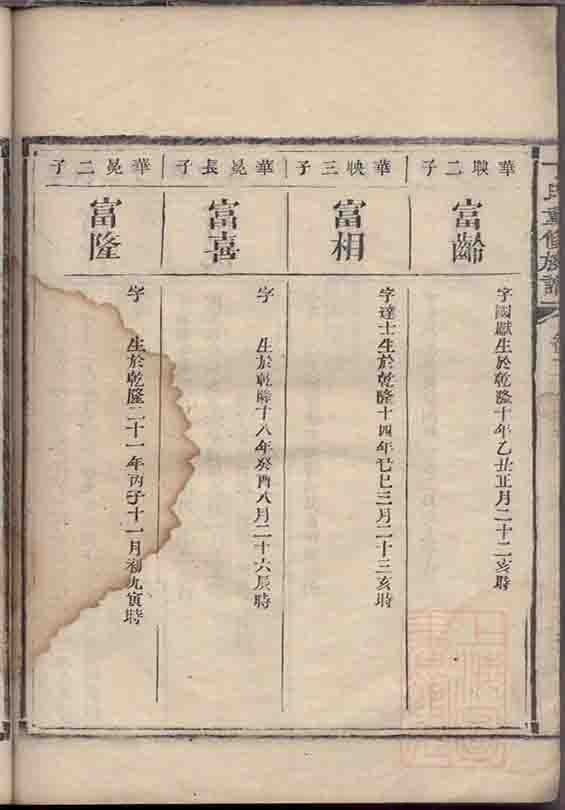 氏重修族譜
華映二子
富齡
字國獻生於乾隆十年乙丑正月二十二亥時
華映三子
富相
字達士生於乾隆十四年己巳三月二十三亥時
華晃長子
富喜
字 生於乾隆十八年癸酉八月二十六辰時
華晃二子
富隆
字 生於乾隆二十一年丙子十一月初九寅時